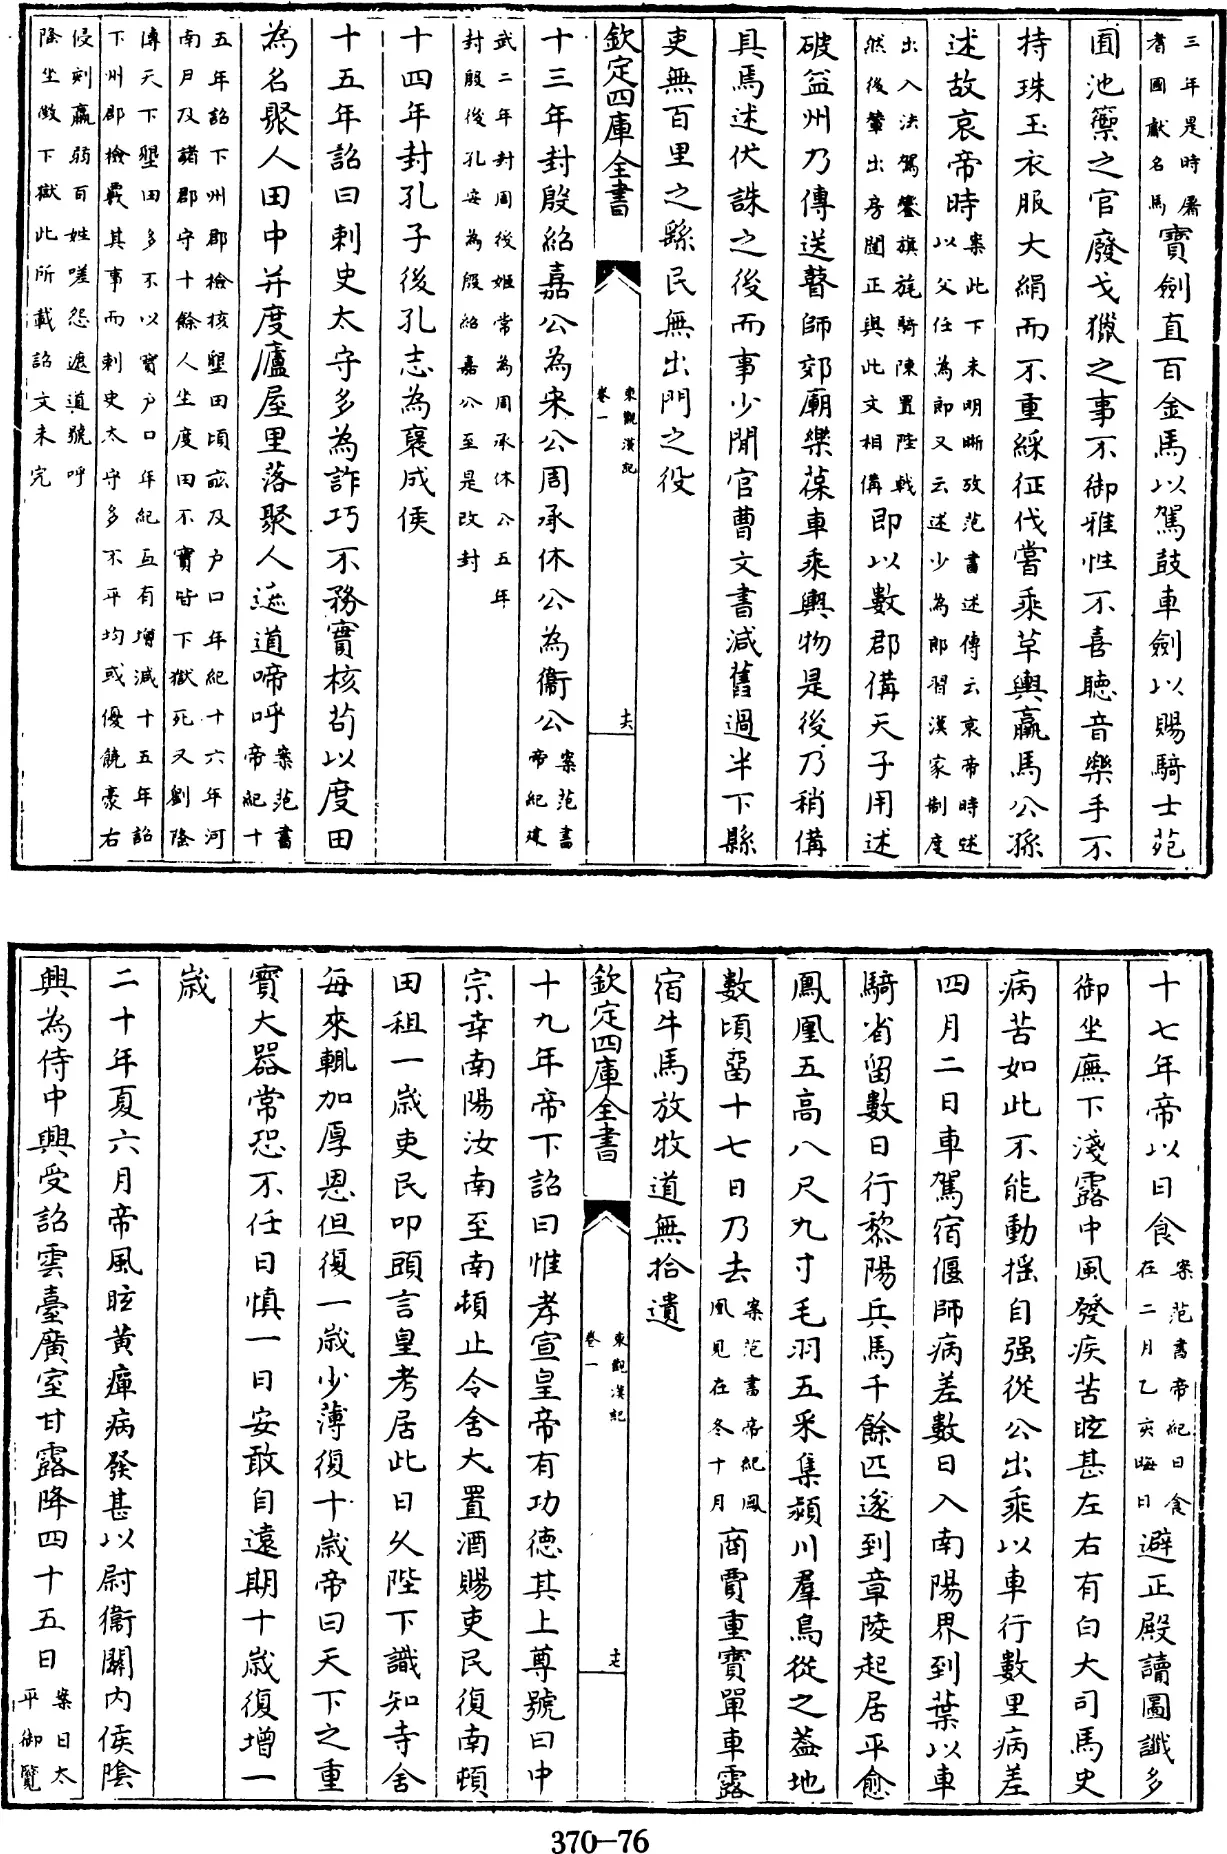 三年是時屠
者國獻名馬寶劍直百金馬以駕鼓車劍以賜騎士苑
囿池籞之官廢弋獵之事不御雅性不喜聽音樂手不
持珠玉衣服大絹而不重綵征伐嘗乘草輿羸馬公孫
述故哀帝時案此下未明晰攷范書述傳云哀帝時述
以父任為郎又云述少為郎習漢家制度
出入法駕鑾旗旄騎陳置陛戟
然後輦出房闥正與此文相備即以數郡備天子用述
破益州乃傳送瞽師郊廟樂葆車乘輿物是後乃稍備
具焉述伏誅之後而事少閒官曹文書減舊過半下縣
吏無百里之繇民無出門之役
欽定四庫全書
東觀漢記
卷一
十六
十三年封殷紹嘉公為宋公周承休公為衞公案范書
帝紀建
武二年封周後姬常為周承休公五年
封殷後孔安為殷紹嘉公至是改封
十四年封孔子後孔志為褒成侯
十五年詔曰刺史太守多為詐巧不務實核茍以度田
為名聚人田中并度廬屋里落聚人遮道啼呼案范書
帝紀十
五年詔下州郡檢核墾田頃畝及户口年紀十六年河
南尹及諸郡守十餘人坐度田不實皆下獄死又劉隆
傳天下墾田多不以實户口年紀互有增減十五年詔
下州郡檢覈其事而刺史太守多不平均或優饒豪右
侵刻羸弱百姓嗟怨遮道號呼
隆坐徵下獄此所載詔文未完
十七年帝以日食案范書帝紀日食
在二月乙亥晦日避正殿讀圖讖多
御坐廡下淺露中風發疾苦眩甚左右有白大司馬史
病苦如此不能動搖自强從公出乘以車行數里病差
四月二日車駕宿偃師病差數日入南陽界到葉以車
騎省留數日行黎陽兵馬千餘匹遂到章陵起居平愈
鳳凰五高八尺九寸毛羽五采集潁川羣鳥從之蓋地
數頃畱十七日乃去案范書帝紀鳳
凰見在冬十月商賈重寶單車露
宿牛馬放牧道無拾遺
欽定四庫全書
東觀漢記
卷一
十七
十九年帝下詔曰惟孝宣皇帝有功德其上尊號曰中
宗幸南陽汝南至南頓止令舍大置酒賜吏民復南頓
田租一歲吏民叩頭言皇考居此日久陛下識知寺舍
每來輒加厚恩但復一歲少薄復十歲帝曰天下之重
寶大器常恐不任日慎一日安敢自遠期十歲復增一
歲
二十年夏六月帝風眩黃癉病發甚以尉衞關內侯陰
興為侍中興受詔雲臺廣室甘露降四十五日案日太
平御覽
370-76